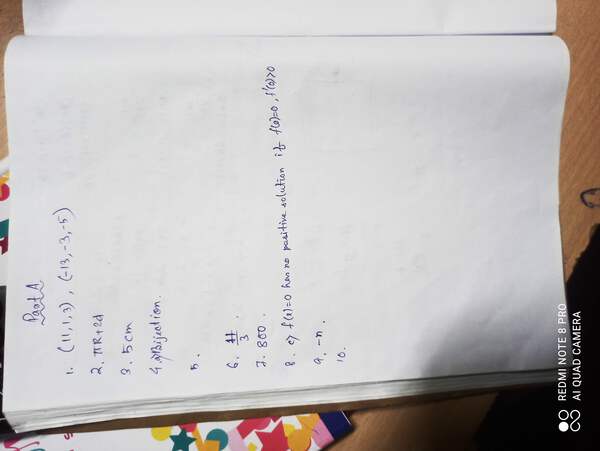 Part A
1. (11,1,3), (-13,-3,-5)
2. πR+2d
3. 5cm
4. a) Bijection.
5.
6. 11/3.
7. 800.
8. c) f(x)=0 has no positive solution if f(0)=0, f'(0)>0
9. -n.
10.
REDMI NOTE 8 PRO
AI QUAD CAMERA